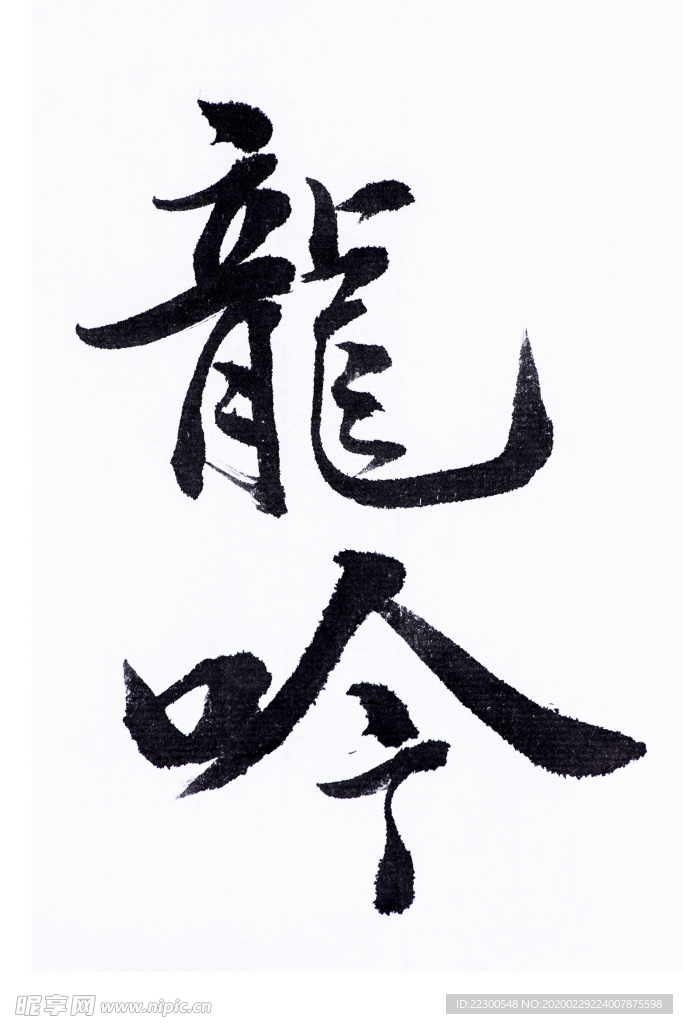 龍
吟
昵享网 www.nipic.cn
ID:22300548 NO:20200229224007875598